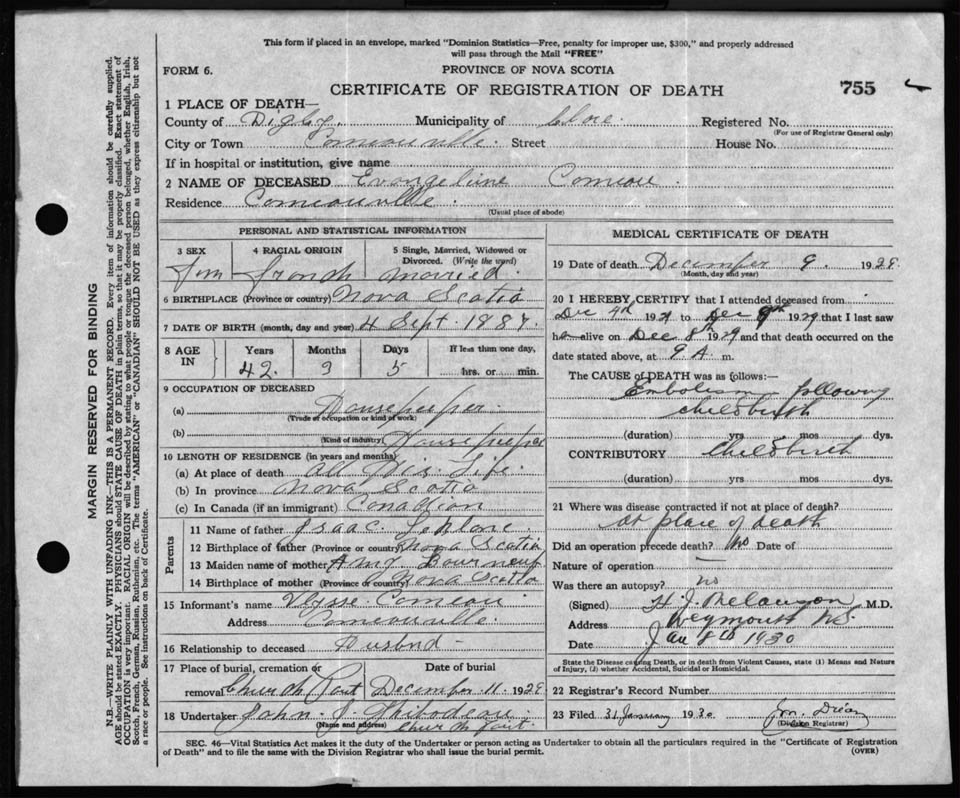 This form if placed in an envelope, marked "Dominion Statistics—Free, penalty for improper use, $300," and properly addressed
will pass through the Mail "FREE"
FORM 6.
PROVINCE OF NOVA SCOTIA
CERTIFICATE OF REGISTRATION OF DEATH
755
1 PLACE OF DEATH—
County of Digby. Municipality of Clare. Registered No.
(For use of Registrar General only)
City or Town Comeauville. Street House No.
If in hospital or institution, give name
2 NAME OF DECEASED Evangeline Comeau.
Residence Comeauville.
(Usual place of abode)
PERSONAL AND STATISTICAL INFORMATION
3 SEX 4 RACIAL ORIGIN 5 Single, Married, Widowed or
Divorced. (Write the word)
Fem French married.
6 BIRTHPLACE (Province or country) Nova Scotia
7 DATE OF BIRTH (month, day and year) 4 Sept. 1887.
8 AGE IN Years Months Days If less than one day,
42. 3 5 hrs. or min.
9 OCCUPATION OF DECEASED
(a) Housekeeper.
(Trade or occupation or kind of work)
(b) Housekeeper
(Kind of industry)
10 LENGTH OF RESIDENCE (in years and months)
(a) At place of death all His Life.
(b) In province Nova Scotia
(c) In Canada (if an immigrant) Canadian
Parents
11 Name of father Isaac LeBlanc.
12 Birthplace of father (Province or country) Nova Scotia
13 Maiden name of mother Amy. Bourneuf
14 Birthplace of mother (Province or country) Nova Scotia
15 Informant's name Ulysse Comeau
Address Comeauville.
16 Relationship to deceased Husbnd
17 Place of burial, cremation or
removal Church Point
Date of burial
December 11. 1929
18 Undertaker John J Thibodeau.
(Name and address) Church Point
MEDICAL CERTIFICATE OF DEATH
19 Date of death December 9. 1929.
(Month, day and year)
20 I HEREBY CERTIFY that I attended deceased from
Dec 9th 1929 to Dec 9th 1929 that I last saw
h alive on Dec 8th 1929 and that death occurred on the
date stated above, at 9 A. m.
The CAUSE of DEATH was as follows:—
Embolism following
childbirth
(duration) yrs mos dys.
CONTRIBUTORY Childbirth
(duration) yrs mos dys.
21 Where was disease contracted if not at place of death?
At place of death
Did an operation precede death? No Date of
Nature of operation —
Was there an autopsy? no
(Signed) H. J. Melanson M.D.
Address Weymouth N.S.
Date Jan 8th 1930
State the Disease causing Death, or in death from Violent Causes, state (1) Means and Nature
of Injury, (2) whether Accidental, Suicidal or Homicidal.
22 Registrar's Record Number
23 Filed 31 January 1930
(Division Registrar)
SEC. 46—Vital Statistics Act makes it the duty of the Undertaker or person acting as Undertaker to obtain all the particulars required in the "Certificate of Registration
of Death" and to file the same with the Division Registrar who shall issue the burial permit. (OVER)
MARGIN RESERVED FOR BINDING
N.B.—WRITE PLAINLY WITH UNFADING INK—THIS IS A PERMANENT RECORD. Every item of information should be carefully supplied.
AGE should be stated EXACTLY. PHYSICIANS should STATE CAUSE OF DEATH in plain terms, so that it may be properly classified. Exact statement of
OCCUPATION is very important. RACIAL ORIGIN will be described by stating to what people or tongue the deceased person belonged, whether English, Irish,
Scotch, French, German, Russian, Ruthenian, etc. The terms "AMERICAN" or "CANADIAN" SHOULD NOT BE USED as they express citizenship but not
a race or people. See instructions on back of Certificate.